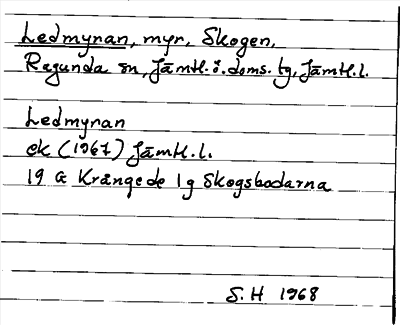 Ledmyran, myr, Skogen,
Ragunda sn, Jämtl. ö. doms. tg, Jämtl. l.
Ledmyran
ek (1967) Jämtl. l.
19 G Krångede 1 g Skogsbodarna
S. H 1968